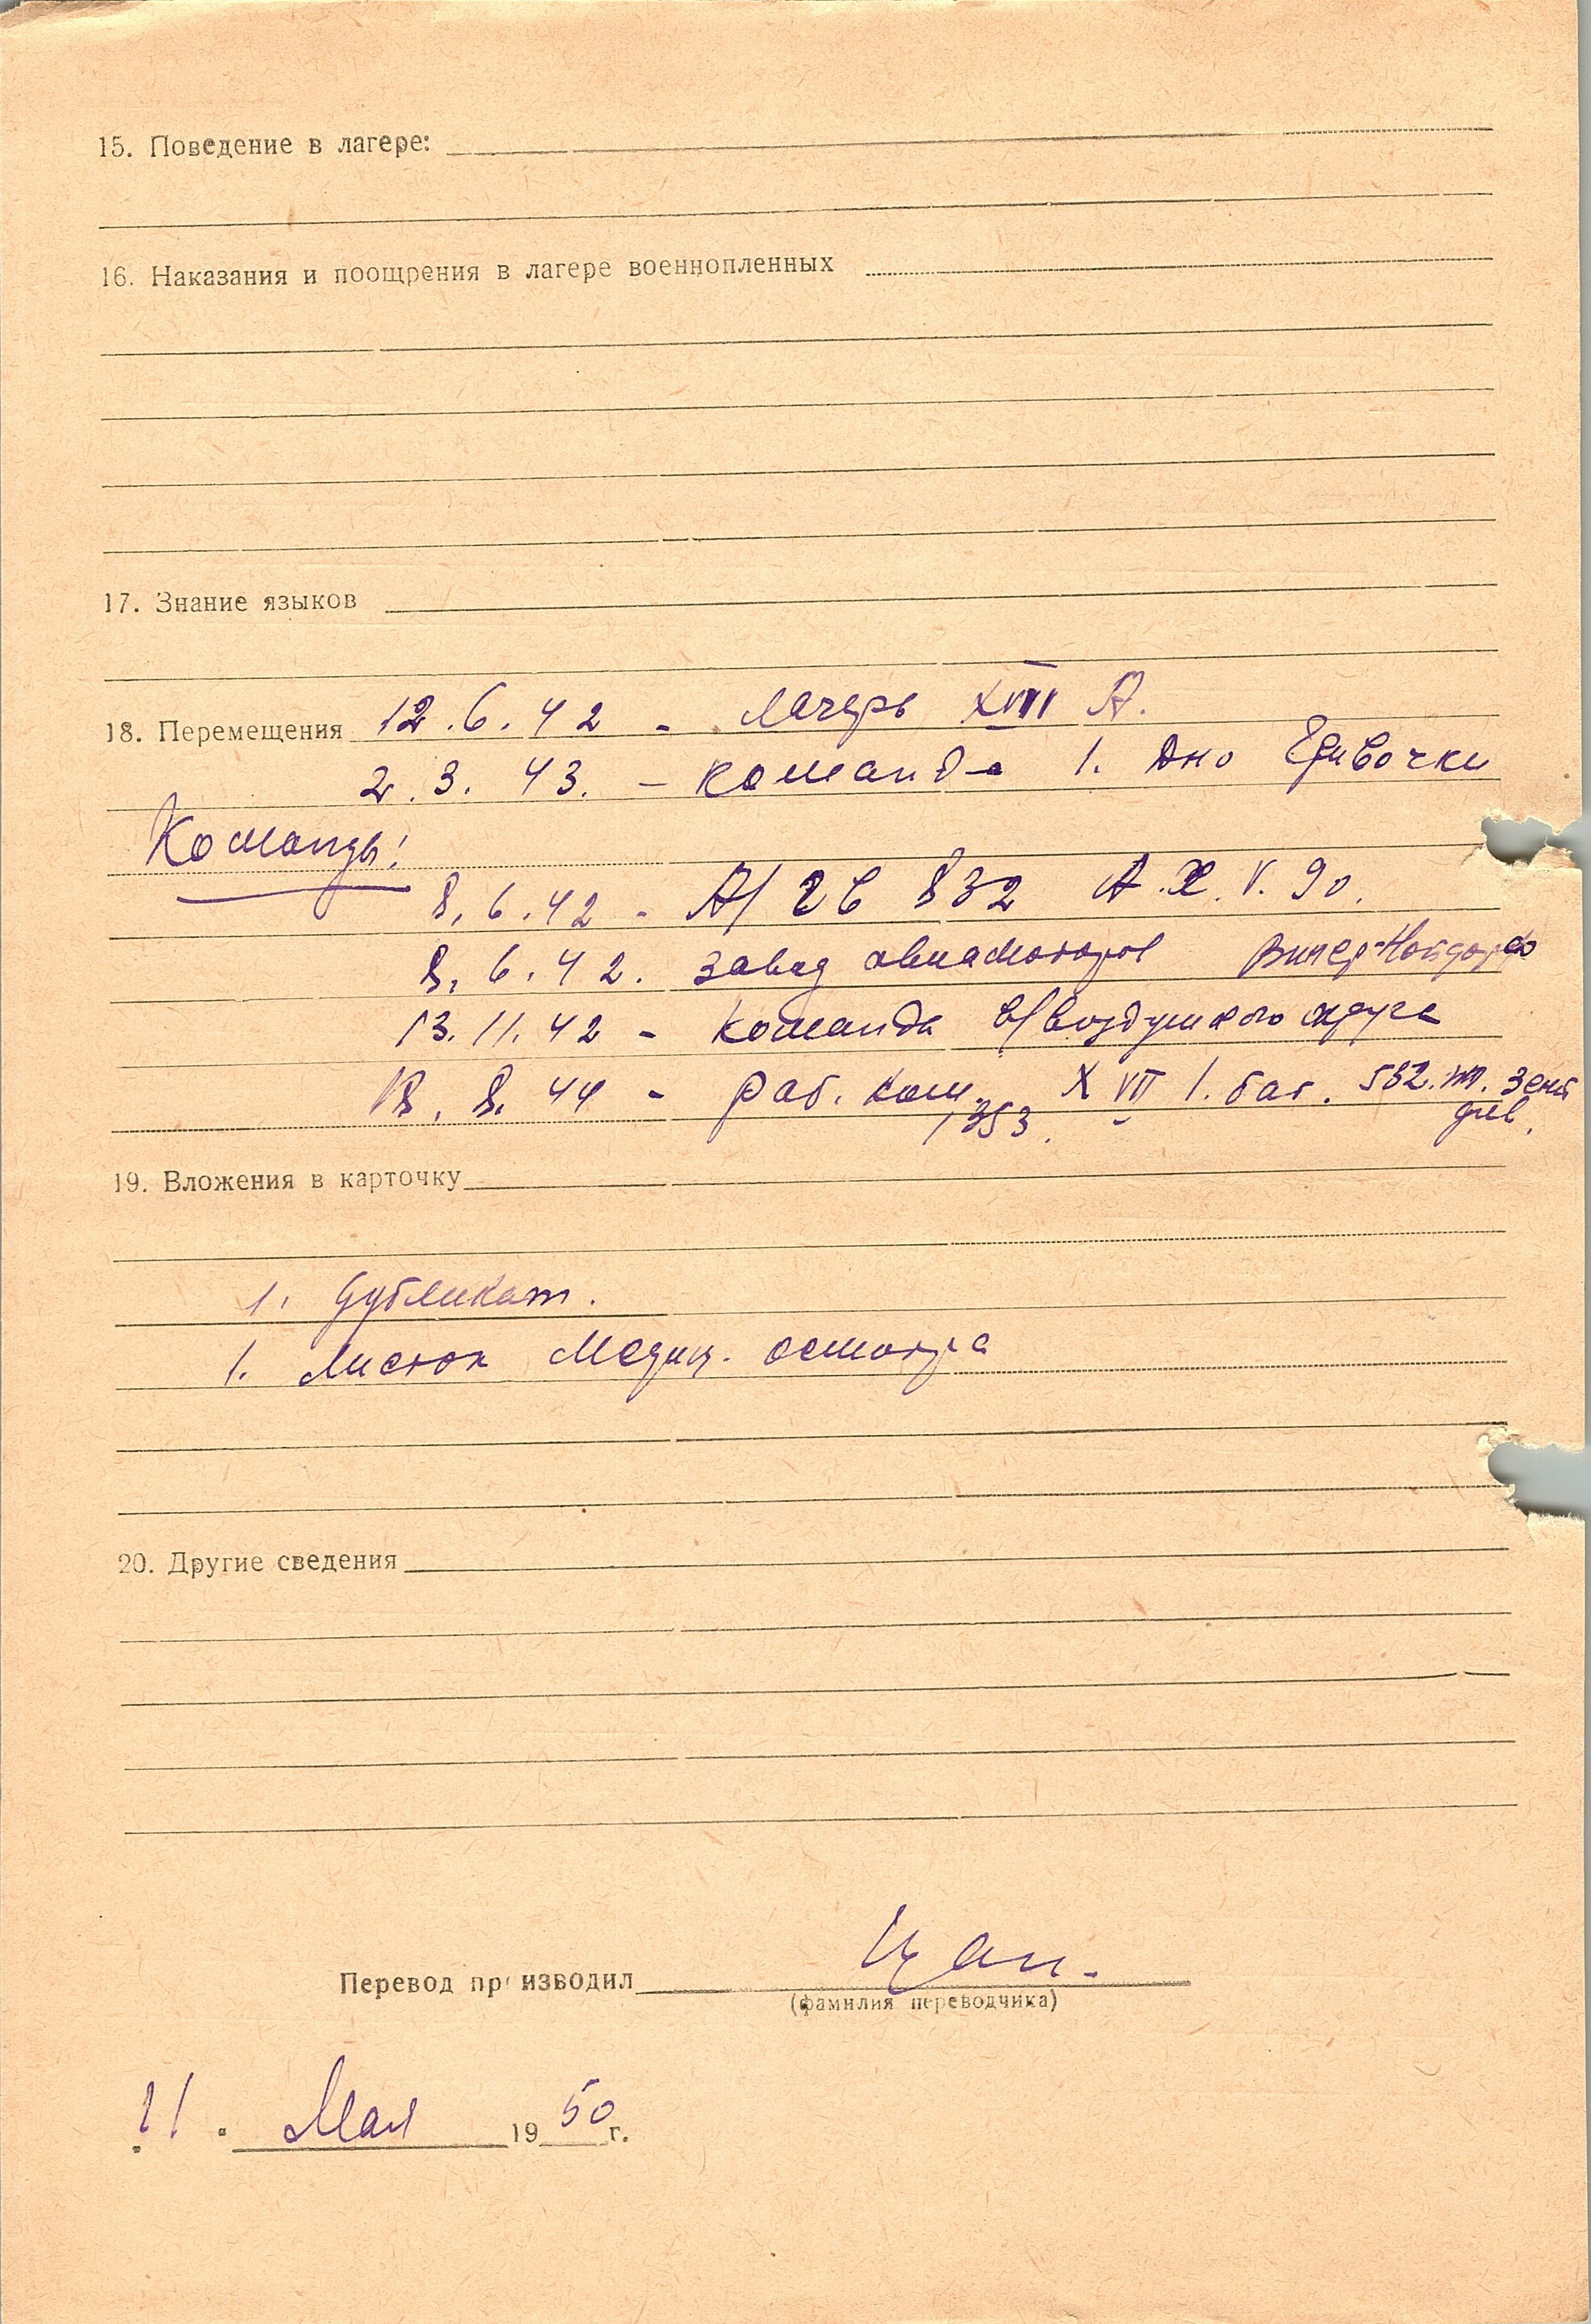 15. Поведение в лагере:
16. Наказания и поощрения в лагере военнопленных
17. Знание языков
18. Перемещения 12.6.42 - Лагерь XVIII А.
2.3.43. - команда 1.
Команды:
8.6.42 - А/ГВ 832 А.Х.V.90.
8.6.42. завод авиамоторов Винер-Нойдорф
13.11.42 - команда в/воздушного округа
18.8.44 - раб. ком. XVII 1. бат. 532. т. зенит
1353. див.
19. Вложения в карточку
1. Дубликат.
1. Листок Медиц. осмотра
20. Другие сведения
Перевод производил Цан.
(фамилия переводчика)
11. Мая 1950 г.